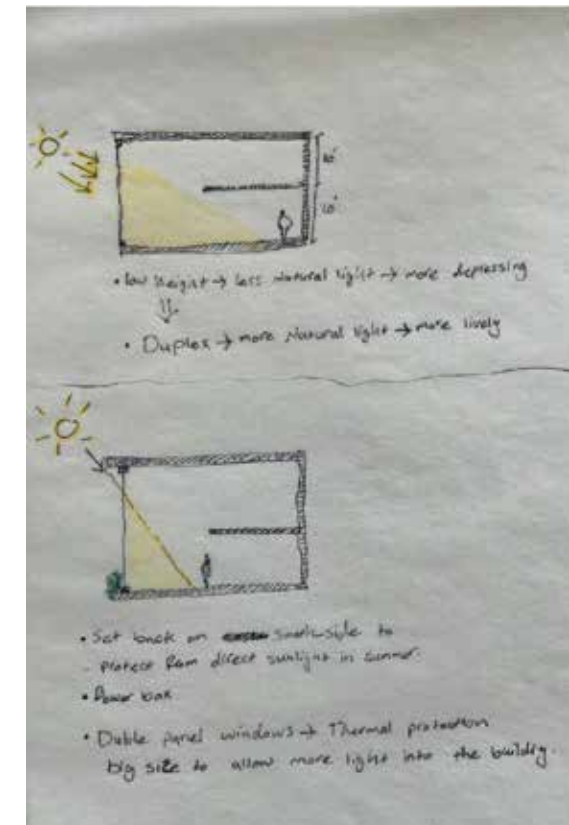 10'
• low height → less natural light → more depressing
• Duplex → more Natural light → more lively
• Set back on south-side to
- protect from direct sunlight in summer.
• Duble panel windows → Thermal protection
big size to allow more light into the building.